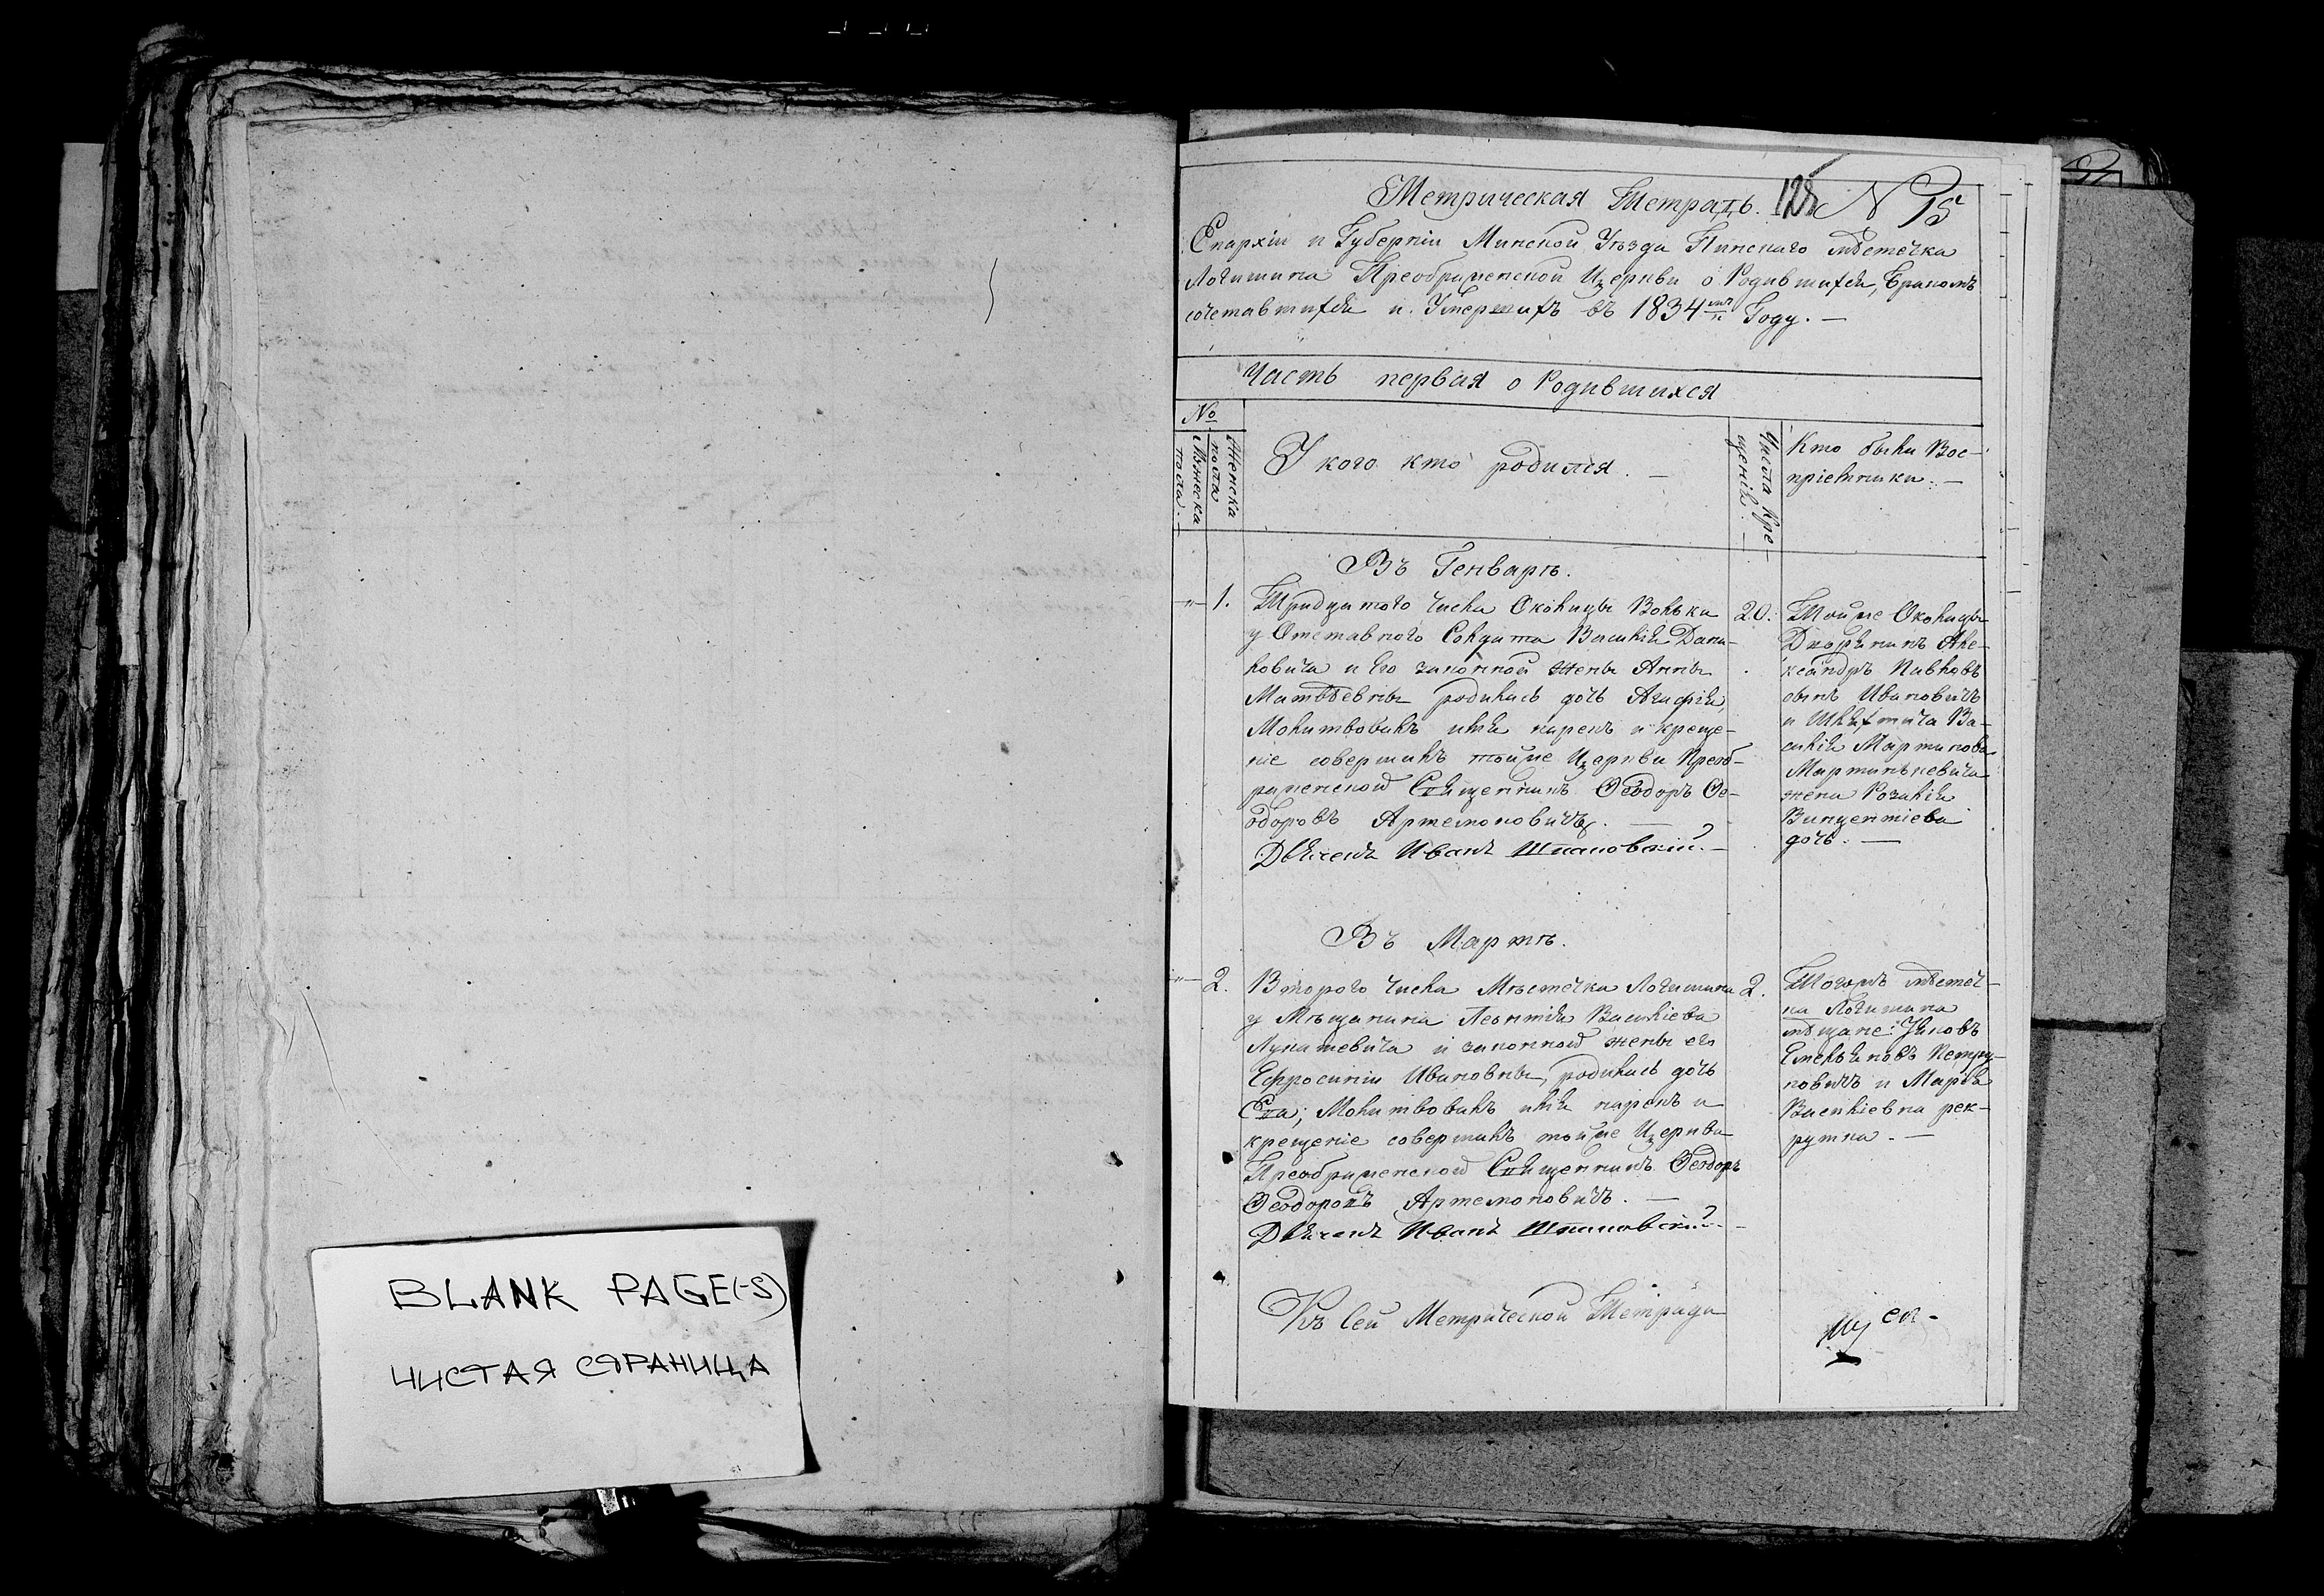 BLANK PAGE(-S)
ЧИСТАЯ СТРАНИЦА
Метрическая Тетрадь. 128 N 15
Епархіи и Губерніи Минской Уѣзда Пинскаго мѣстечка
Логишина Преображенской Церкви о Родившихся, Бракомъ
сочетавшихся и Умершихъ въ 1834мъ Году. —
Часть первая о Родившихся
№
Мужеска пола.
Женска пола
У кого кто родился. —
Числа Кре-
щенія. —
Кто были Вос-
пріемники. —
Въ Генварѣ.
1.
Тридцатого числа Околицы Вольки
у Отставного Солдата Василія Дани-
ловича и его законной жены Анны
Матвѣевны родилась дочь Агафія,
Молитвовалъ имя нарекъ и креще-
ніе совершилъ тойже Церкви Преоб-
раженской Священникъ Ѳеодоръ Ѳе-
одоровъ Артемоновичъ. —
Дьячекъ Иванъ Шпаковскій. —
20.
Тойже Околицы
Дворянинъ Але-
ксандръ Павловъ
сынъ Ивановичъ
и Шляхтича Ва-
силія Мартинова
Мартинкевича
жена Розалія
Винцентіева
дочь. —
Въ Мартѣ.
2.
Второго числа Мѣстечка Логишина
у Мѣщанина Леонтія Василіева
Лукашевича и законной жены его
Ефросиніи Ивановны, родилась дочь
Ева; Молитвовалъ имя нарекъ и
крещеніе совершилъ тойже Церкви
Преображенской Священникъ Ѳеодоръ
Ѳеодоровъ Артемоновичъ. —
Дьячекъ Иванъ Шпаковскій. —
2.
Тогожъ мѣстеч-
ка Логишина
мѣщане: Яковъ
Емельяновъ Петру-
новичъ и Марья
Василіевна рек-
рутка. —
Къ сей Метрической Тетради